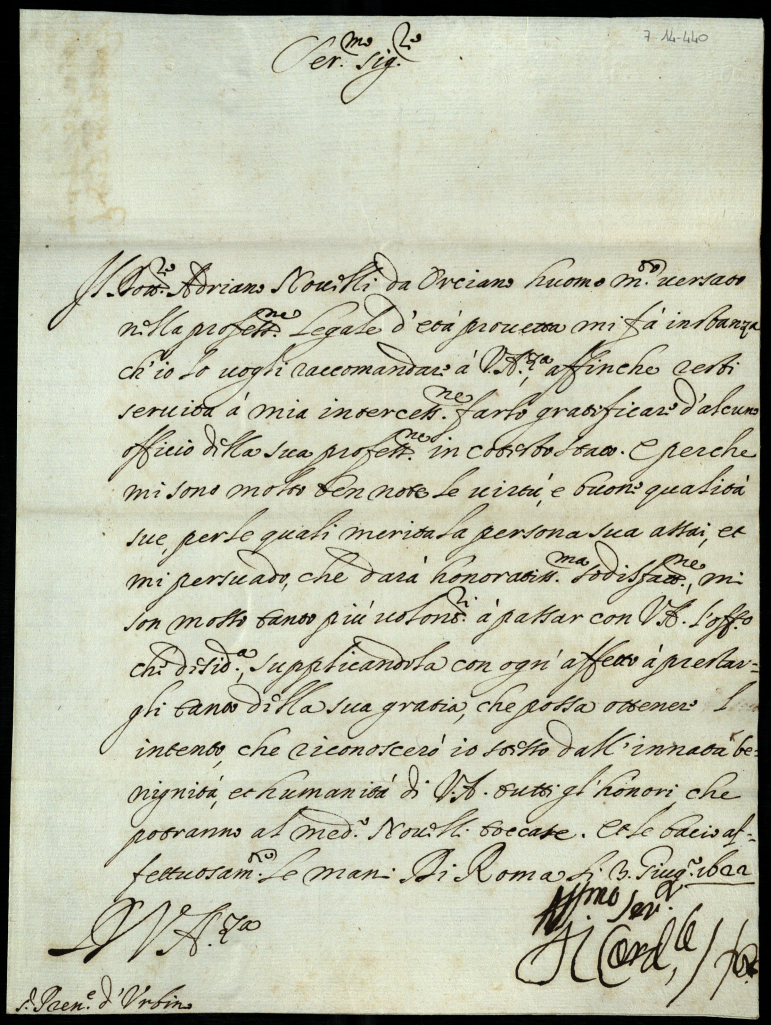 7-14-440
Ser.mo Sig.re
Il Dott.re Adriano Novelli da Orciano huomo m.to versato
nella profess.ne legale d'età provetta mi fà instanza
ch'io lo vogli raccomandare á V.A.za affinche resti
servita á mia intercess.ne farlo gratificare d'alcuno
officio della sua profess.ne in cotesto stato. e perche
mi sono molto ben note le virtú, e buone qualitá
sue, per le quali merita la persona sua assai, et
mi persuado, che dará honoratiss.ma sodisfatt.ne, mi
son mosso tanto piú volont.ri á passar con V.A. l'off.o
che desid.a, supplicandola con ogni affetto á prestar=
gli tanto della sua gratia, che possa ottenere l
intento, che riconosceró io stesso dall'innata be=
nignitá, et humanitá di V.A. tutti gl'honori, che
potranno al med.o Novelli toccare. Et le bacio af=
fettuosam.te le mani Di Roma li 3 Giug.o 1622
D V.A.za
Aff.mo Ser.r
Il Card.le
s. Pren.e d'Urbino